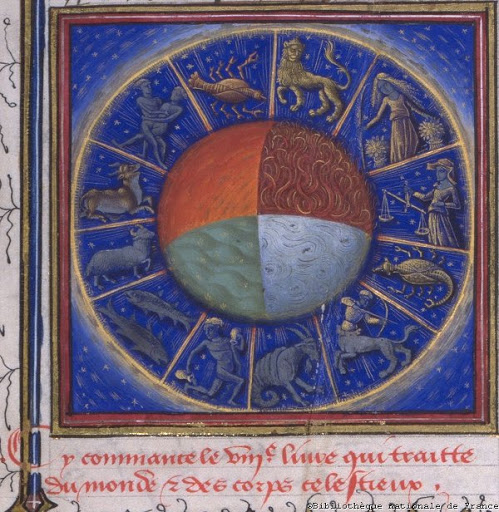 Cy commance le viijᵉ livre qui traitte
du monde & des corps celestieux .
©Bibliothèque nationale de France